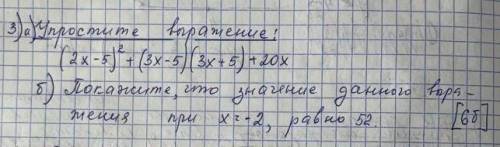 3) а) Упростите выражение:
(2x-5)² + (3x-5)(3x+5)+20x
б) Покажите, что значение данного выра-
жения при x=-2, равно 52. [6б]